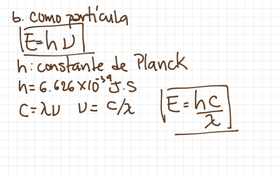 b. Como partícula
E=hν
h: constante de Planck
h= 6.626 x10⁻³⁴ J.S
C=λν ν= C/λ
E= hc/λ